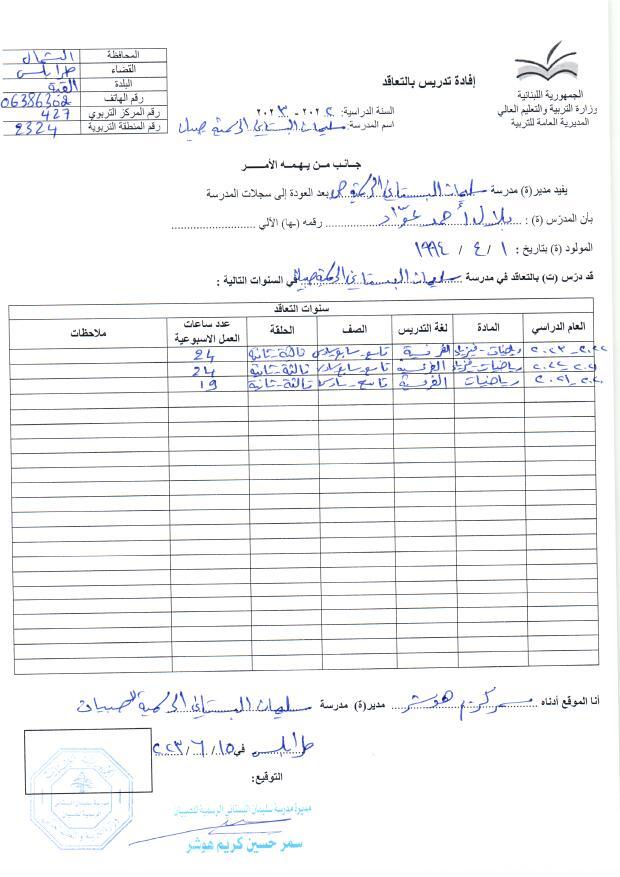 الجمهورية اللبنانية
وزارة التربية والتعليم العالي
المديرية العامة للتربية
المحافظة الشمال
القضاء طرابلس
البلدة القبة
رقم الهاتف 06386302
رقم المركز التربوي 427
رقم المنطقة التربوية 2324
إفادة تدريس بالتعاقد
السنة الدراسية: ٢٠٢٢ - ٢٠٢٣
اسم المدرسة: سليمان البستاني الرسمية صبيان
جانب من يهمه الأمر
يفيد مدير(ة) مدرسة سليمان البستاني الرسمية بعد العودة إلى سجلات المدرسة
بأن المدرّس (ة) : بلال أحمد عوّاد رقمه (-ها) الآلي
المولود (ة) بتاريخ : ١ / ٤ / ١٩٩٤
قد درّس (ت) بالتعاقد في مدرسة سليمان البستاني الرسمية صبيان في السنوات التالية :
سنوات التعاقد
العام الدراسي المادة لغة التدريس الصف الحلقة عدد ساعات العمل الاسبوعية ملاحظات
٢٠٢٢-٢٠٢٣ رياضيات - فيزياء الفرنسية تاسع سابع سادس ثالثة-ثانية 24
٢٠٢١-٢٠٢٢ رياضيات - فيزياء الفرنسية تاسع سابع سادس ثالثة-ثانية 24
٢٠٢٠-٢٠٢١ رياضيات الفرنسية تاسع - سادس ثالثة-ثانية 19
أنا الموقع أدناه سمر كريم هوشر مدير(ة) مدرسة سليمان البستاني الرسمية للصبيان
طرابلس في ١٥/ ٦ / ٢٠٢٣
التوقيع:
مديرة مدرسة سليمان البستاني الرسمية للصبيان
سمر حسين كريم هوشر
مدرسة سليمان البستاني
الرسمية للصبيان